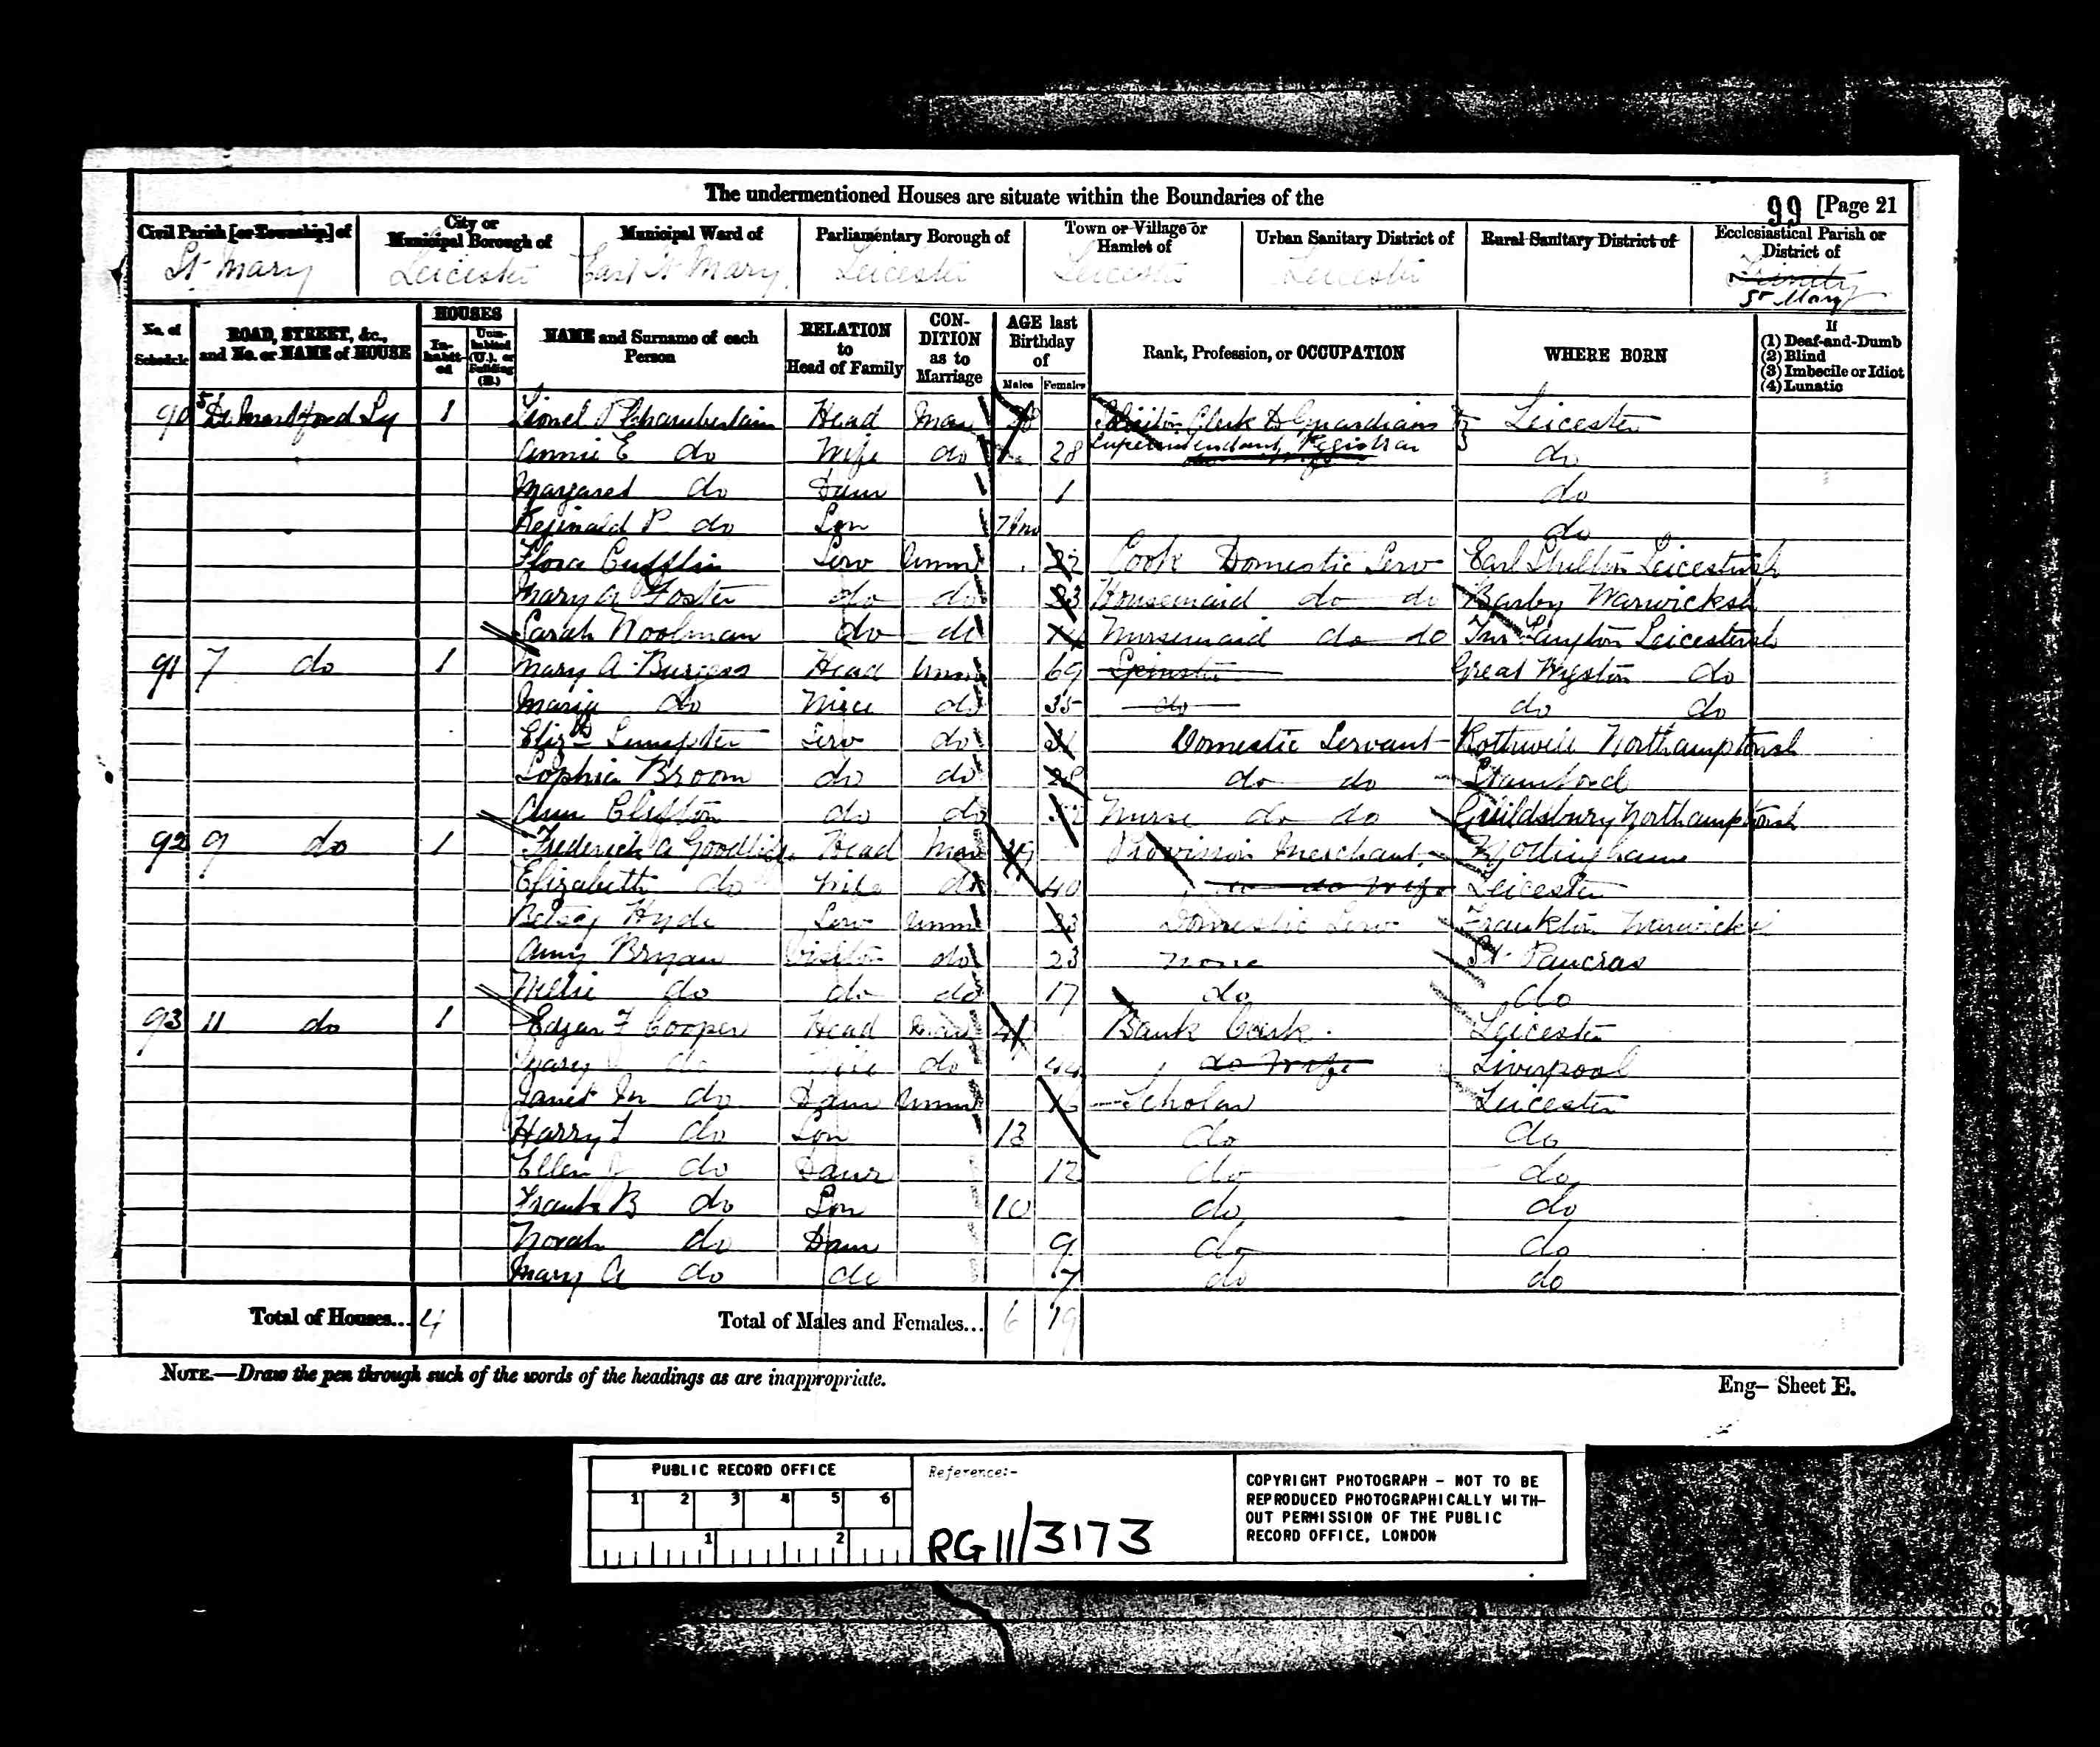 The undermentioned Houses are situate within the Boundaries of the
99 [Page 21
Civil Parish [or Township] of
City or Municipal Borough of
Municipal Ward of
Parliamentary Borough of
Town or Village or Hamlet of
Urban Sanitary District of
Rural Sanitary District of
Ecclesiastical Parish or District of
St Mary
Leicester
East St Mary
Leicester
Leicester
Leicester
Trinity
St Mary
No. of Schedule
ROAD, STREET, &c., and No. or NAME of HOUSE
HOUSES
In-habit-ed
Unin-habited (U.), or Building (B.)
NAME and Surname of each Person
RELATION to Head of Family
CON-DITION as to Marriage
AGE last Birthday of
Males Females
Rank, Profession, or OCCUPATION
WHERE BORN
If
(1) Deaf-and-Dumb
(2) Blind
(3) Imbecile or Idiot
(4) Lunatic
90 5 1 Lionel P Chamberlain Head Mar Solicitor Clerk to Guardians Leicester
Superintendant Registrar
Annie E do Wife do 28 do
Margaret do Daur 1 do
Reginald P do Son 7 mo do
Flora Cufflin Serv Unm 22 Cook Domestic Serv Earl Shilton Leicestersh
Mary A Foster do do 23 Housemaid do do Barby Warwicksh
Sarah Woolman do do 14 Nursemaid do do Tur Langton Leicestersh
91 7 do 1 Mary A Burgess Head Unm 69 Spinster Great Wigston do
Maria do Niece do 35 do do do
Elizth Sumpter Serv do 31 Domestic Servant Rothwell Northamptonsh
Sophia Broom do do 28 do do Stamford
Ann Clifton do do Nurse do do Guildsbury Northamptonsh
92 9 do 1 Frederick A Goodliffe Head Mar 39 Provision Merchant Nottingham
Elizabeth do Wife do 40 do do Wife Leicester
Betsey Hyde Serv Unm 33 Domestic Serv Frankton Warwicks
Amy Bryan Visitor do 23 none St Pancras
Nellie do do do 17 do do
93 11 do 1 Edgar F Cooper Head Mar 41 Bank Clerk Leicester
Mary do Wife do 44 do Wife Liverpool
Janet M do Daur Unm 16 Scholar Leicester
Harry F do Son 13 do do
Ellen do Daur 12 do do
Frank B do Son 10 do do
Norah do Daur 9 do do
Mary A do do 7 do do
Total of Houses... 4
Total of Males and Females... 6 19
NOTE.—Draw the pen through such of the words of the headings as are inappropriate.
Eng— Sheet E.
PUBLIC RECORD OFFICE
1 2 3 4 5 6
1 2
Reference:-
RG 11/3173
COPYRIGHT PHOTOGRAPH - NOT TO BE
REPRODUCED PHOTOGRAPHICALLY WITH-
OUT PERMISSION OF THE PUBLIC
RECORD OFFICE, LONDON